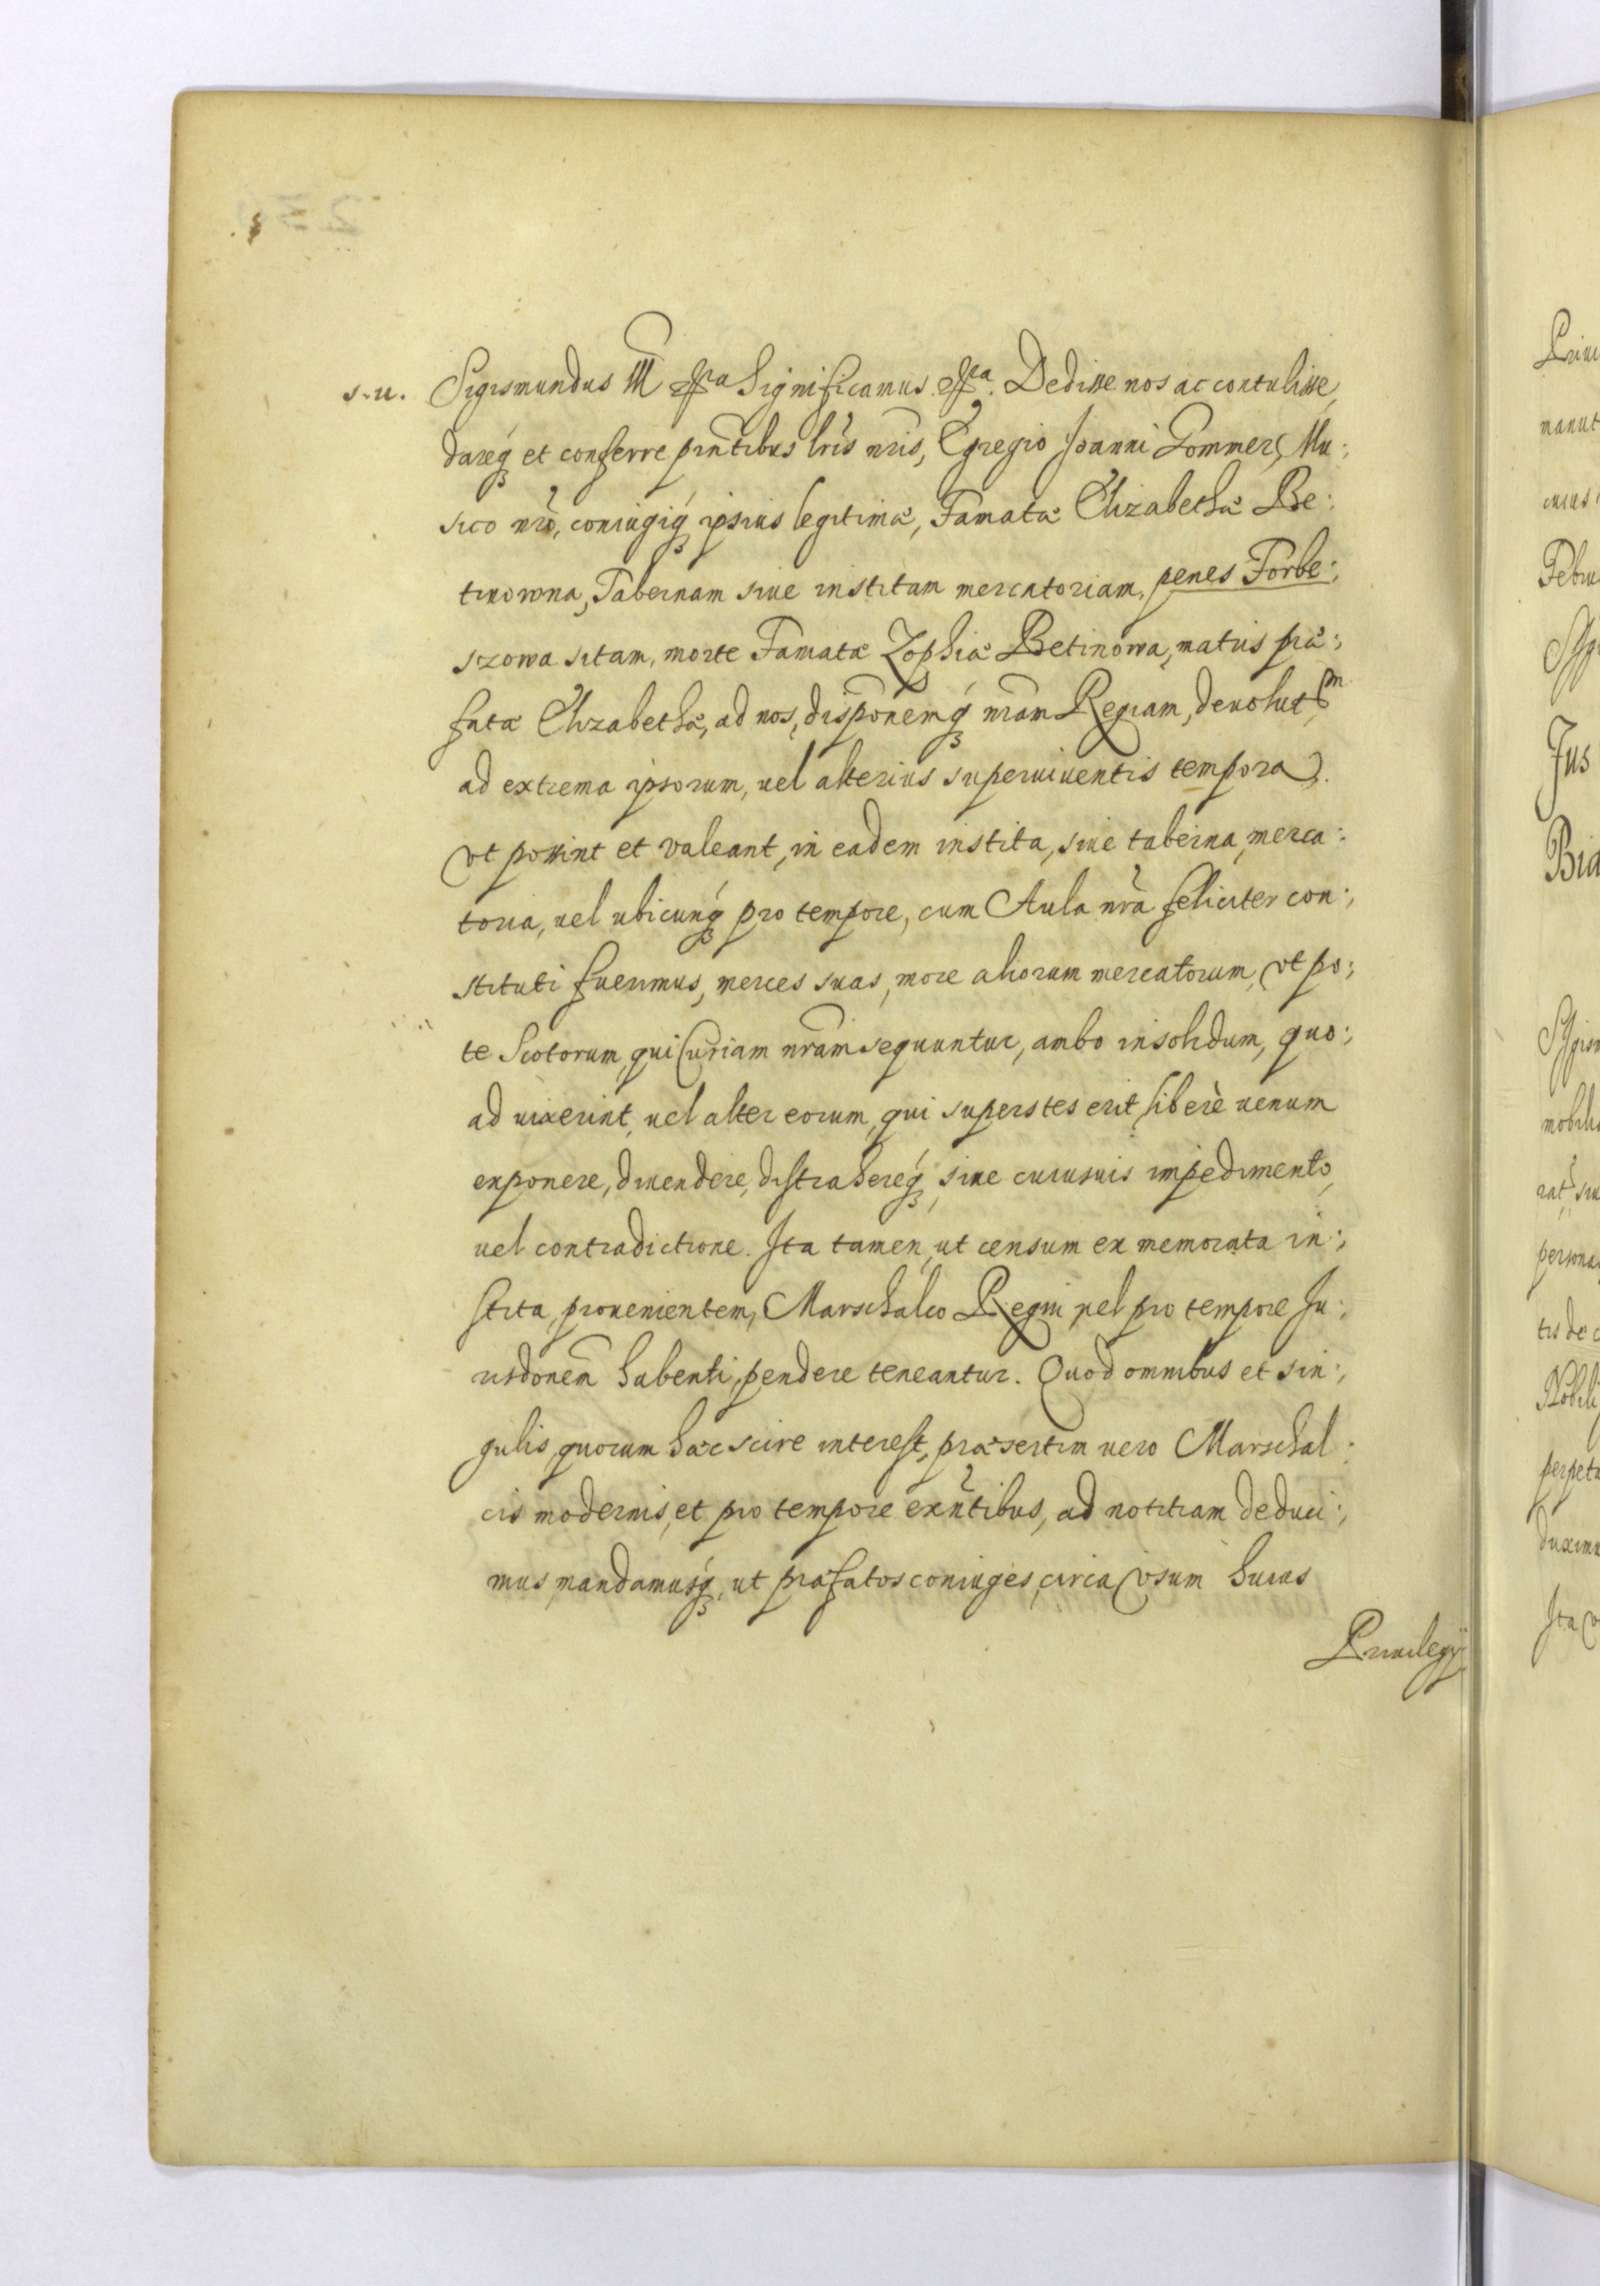 s.u. Sigismundus III etca Significamus. etca. Dedisse nos ac contulisse,
dareq́ et conferre pñtibus lr̃is nr̃is, Egregio Joanni Gommer, Mu:
sico nr̃o, coniugiq́ ipsius legitimæ, Famatæ Elizabethæ Be:
tinowna, Tabernam siue institam mercatoriam, penes Forbe:
szowa sitam, morte Famatæ Zophiæ Betinowa, matris præ:
fatæ Elizabethæ, ad nos, dispõnemq́ nr̃am Regiam, deuolutam
ad extrema ipsorum, uel alterius superuiuentis tempora.
vt possint et valeant, in eadem instita, siue taberna, merca:
toria, uel ubicunq́ pro tempore, cum Aula nr̃a feliciter con:
stituti fuerimus, merces suas, more aliorum mercatorum, vt po:
te Scotorum, qui Curiam nr̃am sequuntur, ambo insolidum, quo:
ad uixerint, uel alter eorum, qui superstes erit, liberè uenum
exponere, diuendere, distrahereq́, sine cuiusuis impedimento,
uel contradictione. Ita tamen, ut censum ex memorata in:
stita, prouenientem, Marschalco Regni, uel pro tempore Ju:
risdõnem habenti, pendere teneantur. Quod omnibus et sin:
gulis, quorum hæc scire interest, præsertim uero Marschal:
cis modernis, et pro tempore exñtibus, ad notitiam deduci:
mus, mandamusq́, ut præfatos coniuges, circa vsum huius
Priuilegij